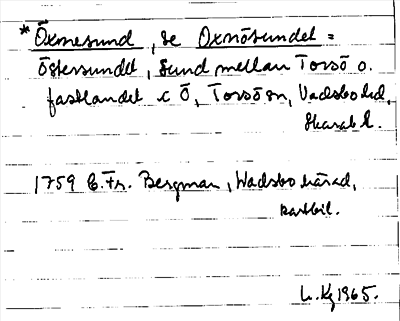 * Öxnesund, se Oxnösundet =
Östersundet, sund mellan Torsö o.
fastlandet c Ö, Torsö sn, Vadsbo hd,
Skarab l.
1759 E. Fr. Bergman, Wadsbo härad,
kartbil.
1965.